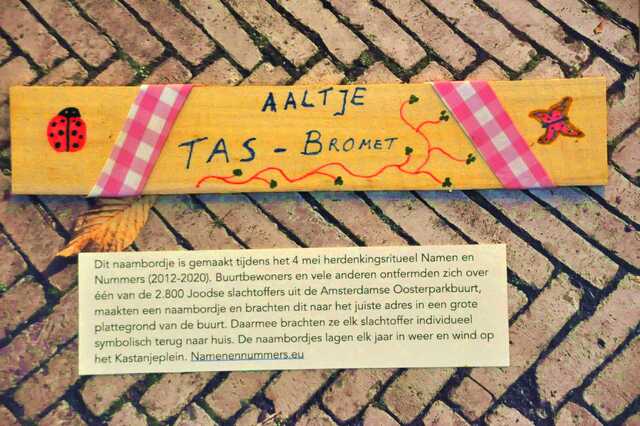 AALTJE
TAS - BROMET
Dit naambordje is gemaakt tijdens het 4 mei herdenkingsritueel Namen en
Nummers (2012-2020). Buurtbewoners en vele anderen ontfermden zich over
één van de 2.800 Joodse slachtoffers uit de Amsterdamse Oosterparkbuurt,
maakten een naambordje en brachten dit naar het juiste adres in een grote
plattegrond van de buurt. Daarmee brachten ze elk slachtoffer individueel
symbolisch terug naar huis. De naambordjes lagen elk jaar in weer en wind op
het Kastanjeplein. Namenennummers.eu